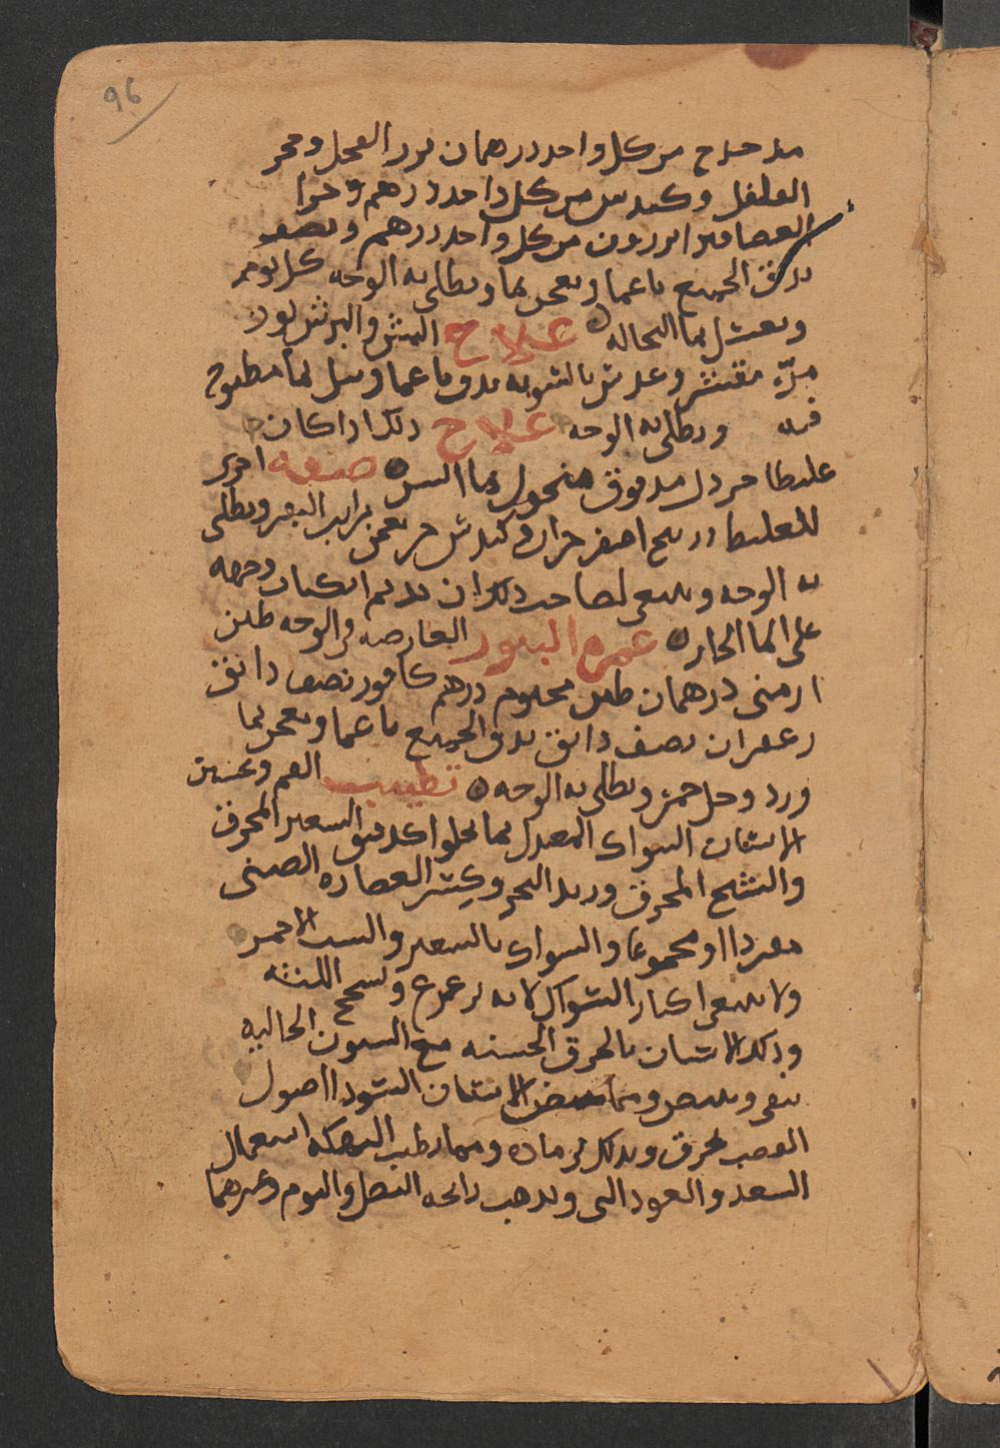 96
من كل واحد درهمان بزر الفجل و
الفلفل وكندس من كل واحد درهم وخرا
العصافير الزرزور من كل واحد درهم ونصف
يدق الجميع ناعما ويعجن بما ويطلى به الوجه كل يوم
ويغسل بما النخاله علاج النمش والبرش لوز
مرّ مقشر وعدس بالسويه يدق ناعما وبل بما مطبوخ
فيه ويطلى به الوجه علاج ذلك اذا كان
غليظا خردل مدقوق منخول بما التين صفه اخرى
للغليظ زرنيخ اصفر وكندس يعجن البقر ويطلى
به الوجه وينبغى لصاحب ذلك ان يديم انكباب وجهه
على الما الحار غمره البثور العارضه فى الوجه طين
ارمنى درهمان طين مختوم درهم كافور نصف دانق
زعفران نصف دانق يدق الجميع ناعما ويعجن بما
ورد وخل خمر ويطلى به الوجه تطييب الفم وتحسين
الاسنان السواك المعتدل بما يجلوا كدقيق الشعير المحرق
والشيح المحرق وزبد البحر وكسر الغضاره الصينى
مفردا او مجموعا والسواك بالسعتر والسنب الاحمر
ولا ينبغى اكثار السواك لانه يزعزع ويسحج اللثه
ودلك الاسنان بالخرق الخشنه مع السنون الجاليه
ينقى ويبيض ومما يبيض الاسنان السود اصول
القصب يحرق ويدلك برماده ومما يطيب النكهه استعمال
السعد والعود النى ويذهب رائحه البصل والثوم وغيرهما